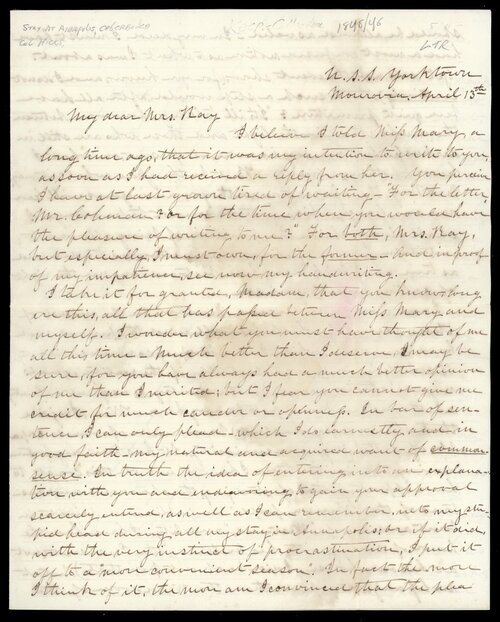 STAY AT ANNAPOLIS,
1845/46
LTR
U. S. S. Yorktown
Monrovia, April 13th
My dear Mrs. Hay
I believe I told Miss Mary, a
long time ago, that it was my intention to write to you,
as soon as I had received a reply from her. You perceive
I have at last grown tired of waiting - "For the letter,
Mr. or for the time when you would have
the pleasure of writing to me?" For both, Mrs. Hay,
but especially, I must own, for the former - And in proof
of my impatience, see now my handwriting.
I take it for granted, Madam, that you know, long
ere this, all that has passed between Miss Mary and
myself. I wonder what you must have thought of me
all this time - Much better than I deserve, I may be
sure, for you have always had a much better opinion
of me than I merited; but I fear you cannot give me
credit for much candor or openness. In bar of sen-
tence, I can only plead - which I do earnestly, and in
good faith - my natural and acquired want of common
sense. In truth the idea of entering into an explana-
tion with you and endeavoring to gain your approval
scarcely entered, as well as I can remember, into my stu-
pid head during all my stay in Annapolis; or if it did,
with the very instinct of procrastination, I put it
off to a "more convenient season". In fact the more
I think of it, the more am I convinced that the plea